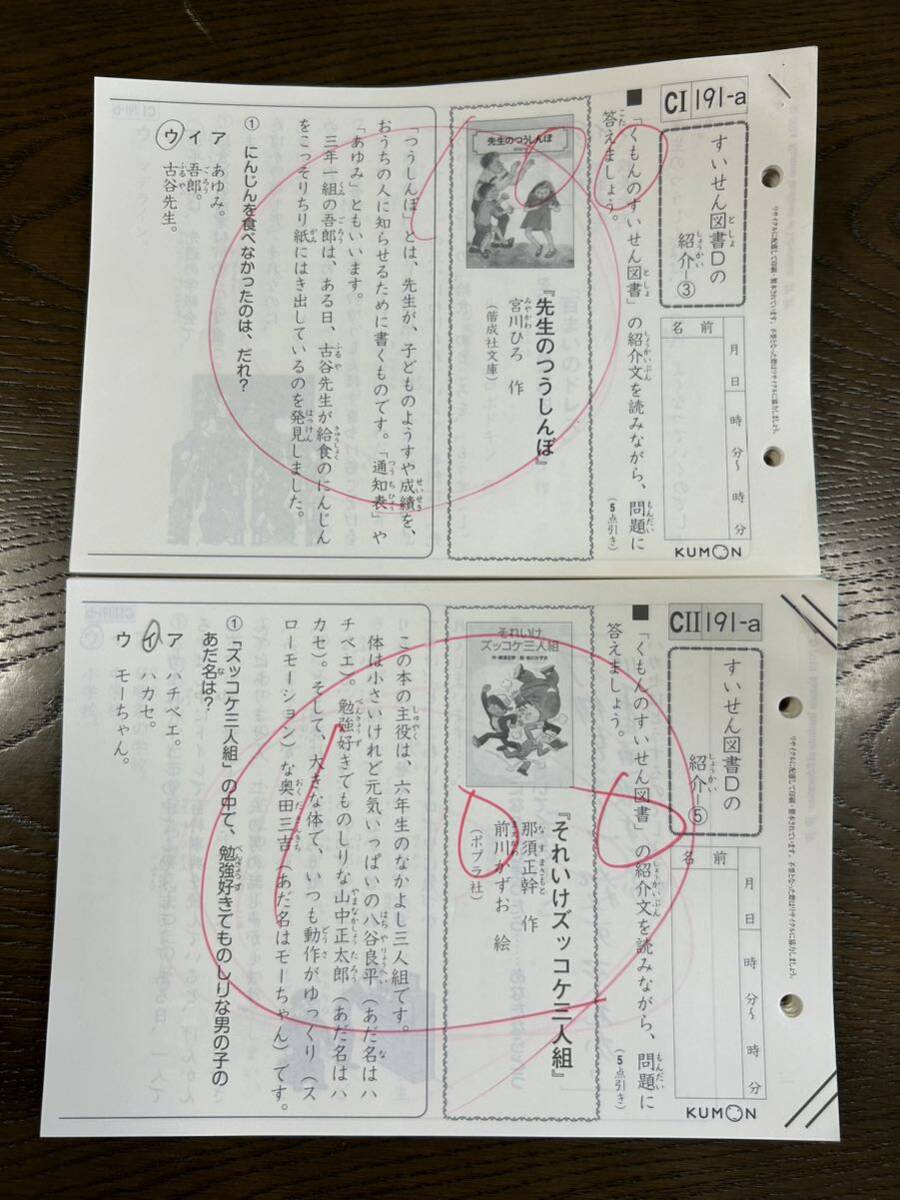 CI 191-a
すいせん図書Dの
紹介―③
名前
月 日 時 分～ 時 分
KUMON
■ 「くもんのすいせん図書」の紹介文を読みながら、問題に
答えましょう。
（5点引き）
先生のつうしんぼ
『先生のつうしんぼ』
宮川ひろ 作
（偕成社文庫）
「つうしんぼ」とは、先生が、子どものようすや成績を、
おうちの人に知らせるために書くものです。「通知表」や
「あゆみ」ともいいます。
三年一組の吾郎は、ある日、古谷先生が給食のにんじん
をこっそりちり紙にはき出しているのを発見しました。
① にんじんを食べなかったのは、だれ？
ア あゆみ。
イ 吾郎。
ウ 古谷先生。
100
CII 191-a
すいせん図書Dの
紹介―⑤
名前
月 日 時 分～ 時 分
KUMON
■ 「くもんのすいせん図書」の紹介文を読みながら、問題に
答えましょう。
（5点引き）
それいけ
ズッコケ三人組
『それいけズッコケ三人組』
那須正幹 作
前川かずお 絵
（ポプラ社）
この本の主役は、六年生のなかよし三人組です。
体は小さいけれど元気いっぱいの八谷良平（あだ名はハ
チベエ）。勉強好きでものしりな山中正太郎（あだ名はハ
カセ）。そして、大きな体で、いつも動作がゆっくり（ス
ローモーション）な奥田三吉（あだ名はモーちゃん）です。
① 「ズッコケ三人組」の中で、勉強好きでものしりな男の子の
あだ名は？
ア ハチベエ。
イ ハカセ。
ウ モーちゃん。
100